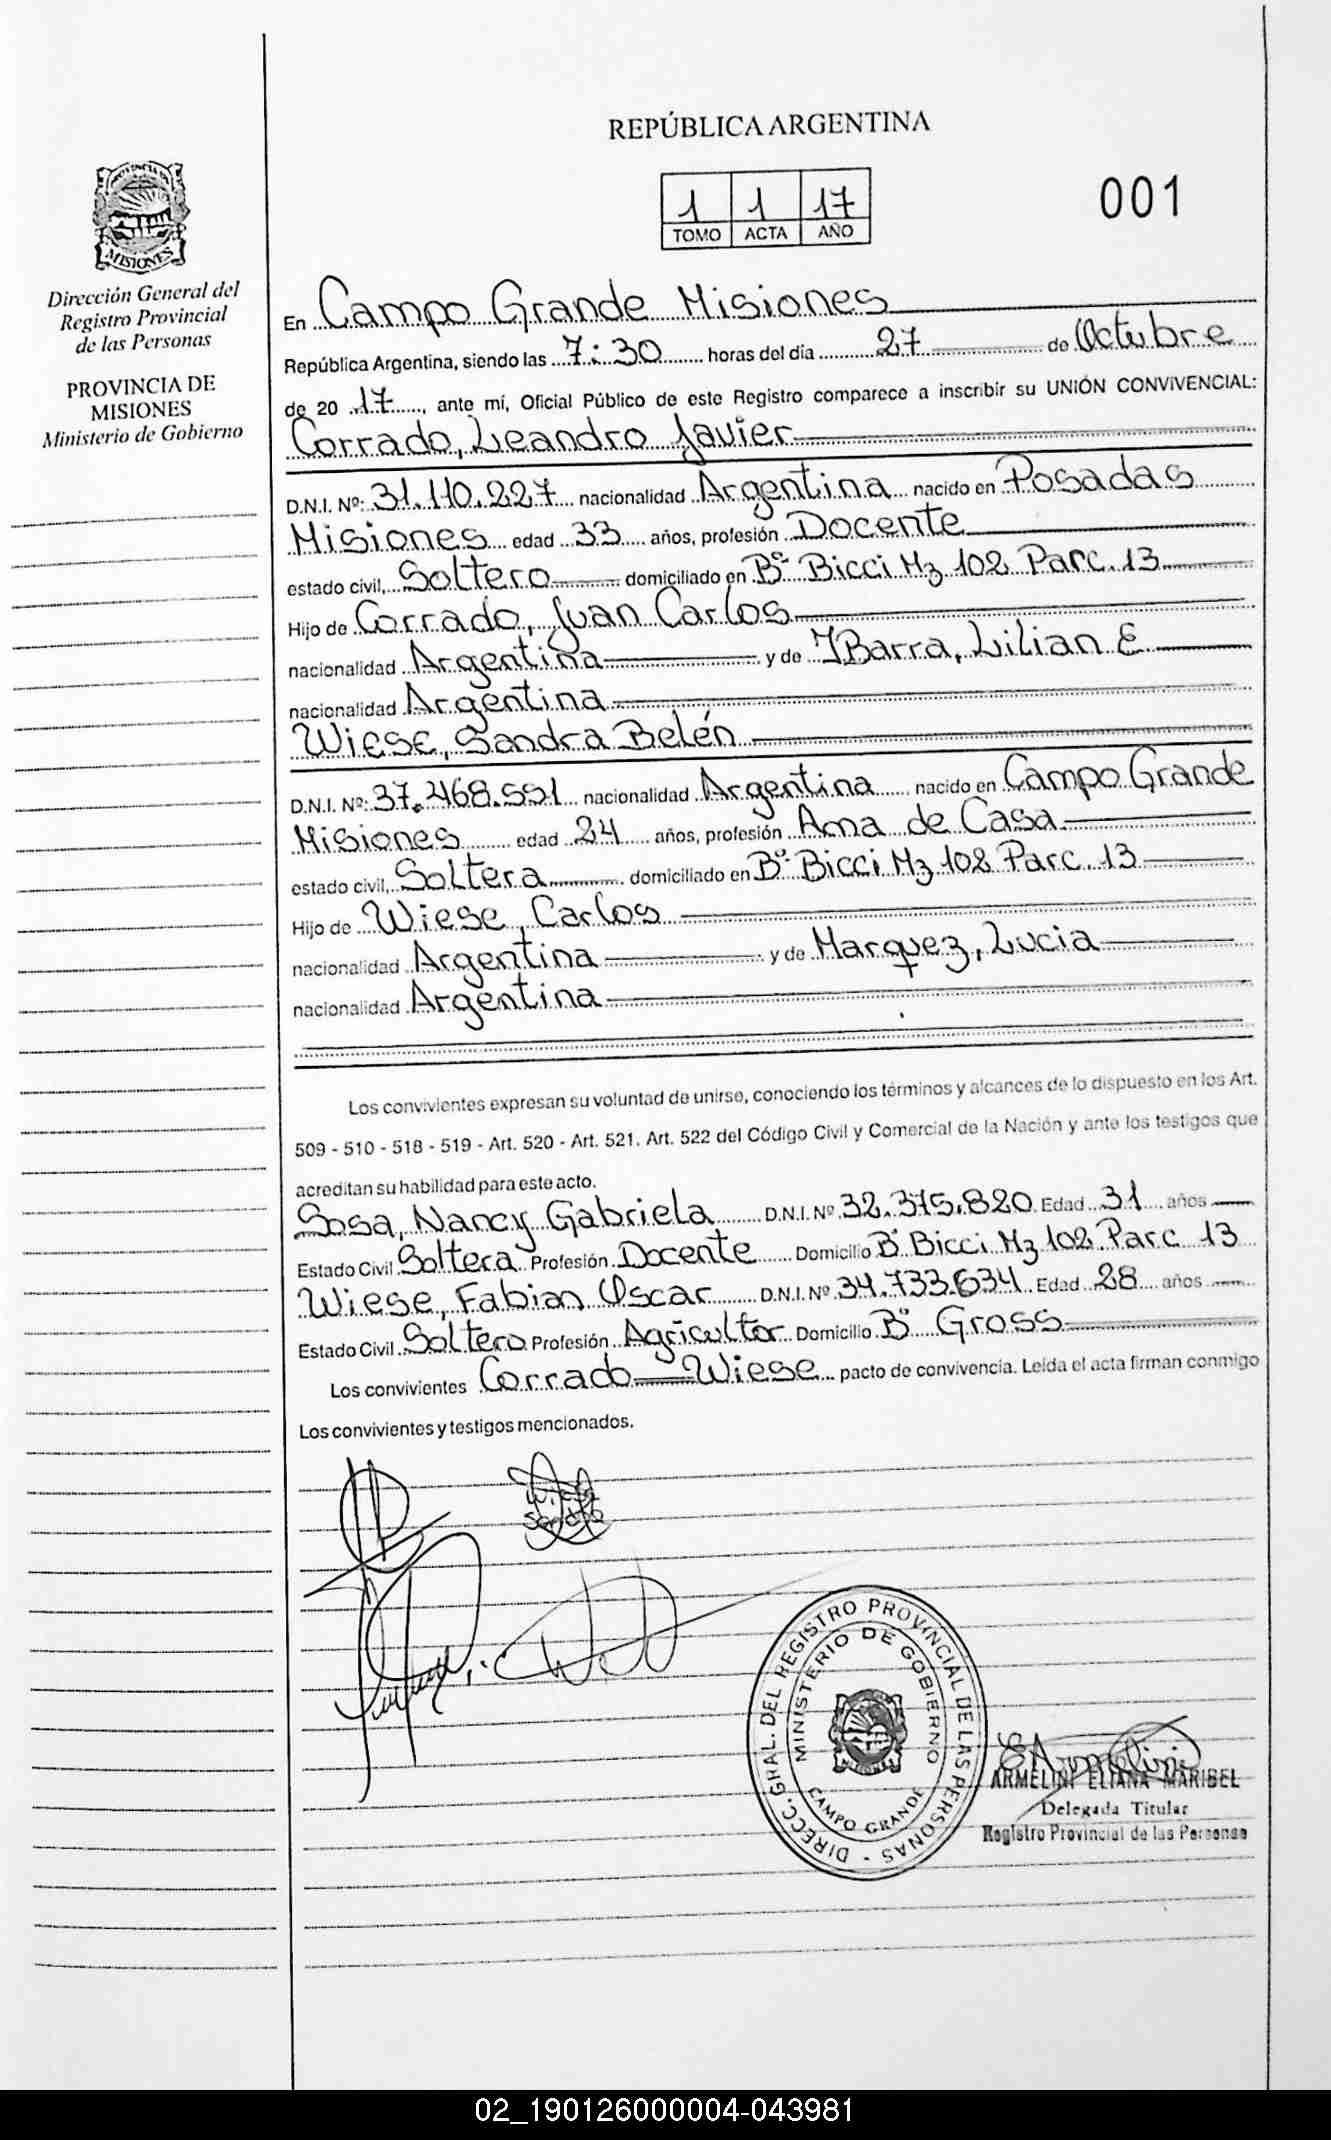 REPÚBLICA ARGENTINA
1 1 17
TOMO ACTA AÑO
001
PROVINCIA DE
MISIONES
Dirección General del
Registro Provincial
de las Personas
PROVINCIA DE
MISIONES
Ministerio de Gobierno
En Campo Grande Misiones
República Argentina, siendo las 7:30 horas del día 27 de Octubre
de 20 17, ante mí, Oficial Público de este Registro comparece a inscribir su UNIÓN CONVIVENCIAL:
Corrado, Leandro Javier
D.N.I. Nº: 31.110.227 nacionalidad Argentina nacido en Posadas
Misiones edad 33 años, profesión Docente
estado civil, Soltero domiciliado en Bº Bicci Mz 102 Parc. 13
Hijo de Corrado, Juan Carlos
nacionalidad Argentina y de IBarra, Lilian E
nacionalidad Argentina
Wiese, Sandra Belén
D.N.I. Nº: 37.468.551 nacionalidad Argentina nacido en Campo Grande
Misiones edad 24 años, profesión Ama de Casa
estado civil, Soltera domiciliado en Bº Bicci Mz 102 Parc. 13
Hijo de Wiese, Carlos
nacionalidad Argentina y de Marquez, Lucia
nacionalidad Argentina
Los convivientes expresan su voluntad de unirse, conociendo los términos y alcances de lo dispuesto en los Art.
509 - 510 - 518 - 519 - Art. 520 - Art. 521. Art. 522 del Código Civil y Comercial de la Nación y ante los testigos que
acreditan su habilidad para este acto.
Sosa, Nancy Gabriela D.N.I. Nº 32.375.820 Edad 31 años
Estado Civil Soltera Profesión Docente Domicilio Bº Bicci Mz 102 Parc 13
Wiese, Fabian Oscar D.N.I. Nº 34.733.634 Edad 28 años
Estado Civil Soltero Profesión Agricultor Domicilio Bº Gross
Los convivientes Corrado Wiese pacto de convivencia. Leída el acta firman conmigo
Los convivientes y testigos mencionados.
Wiese
Sandra
DIRECC. GRAL. DEL REGISTRO PROVINCIAL DE LAS PERSONAS -
MINISTERIO DE GOBIERNO
CAMPO GRANDE
EArmelini
ARMELINI ELIANA MARIBEL
Delegada Titular
Registro Provincial de las Personas
02_190126000004-043981